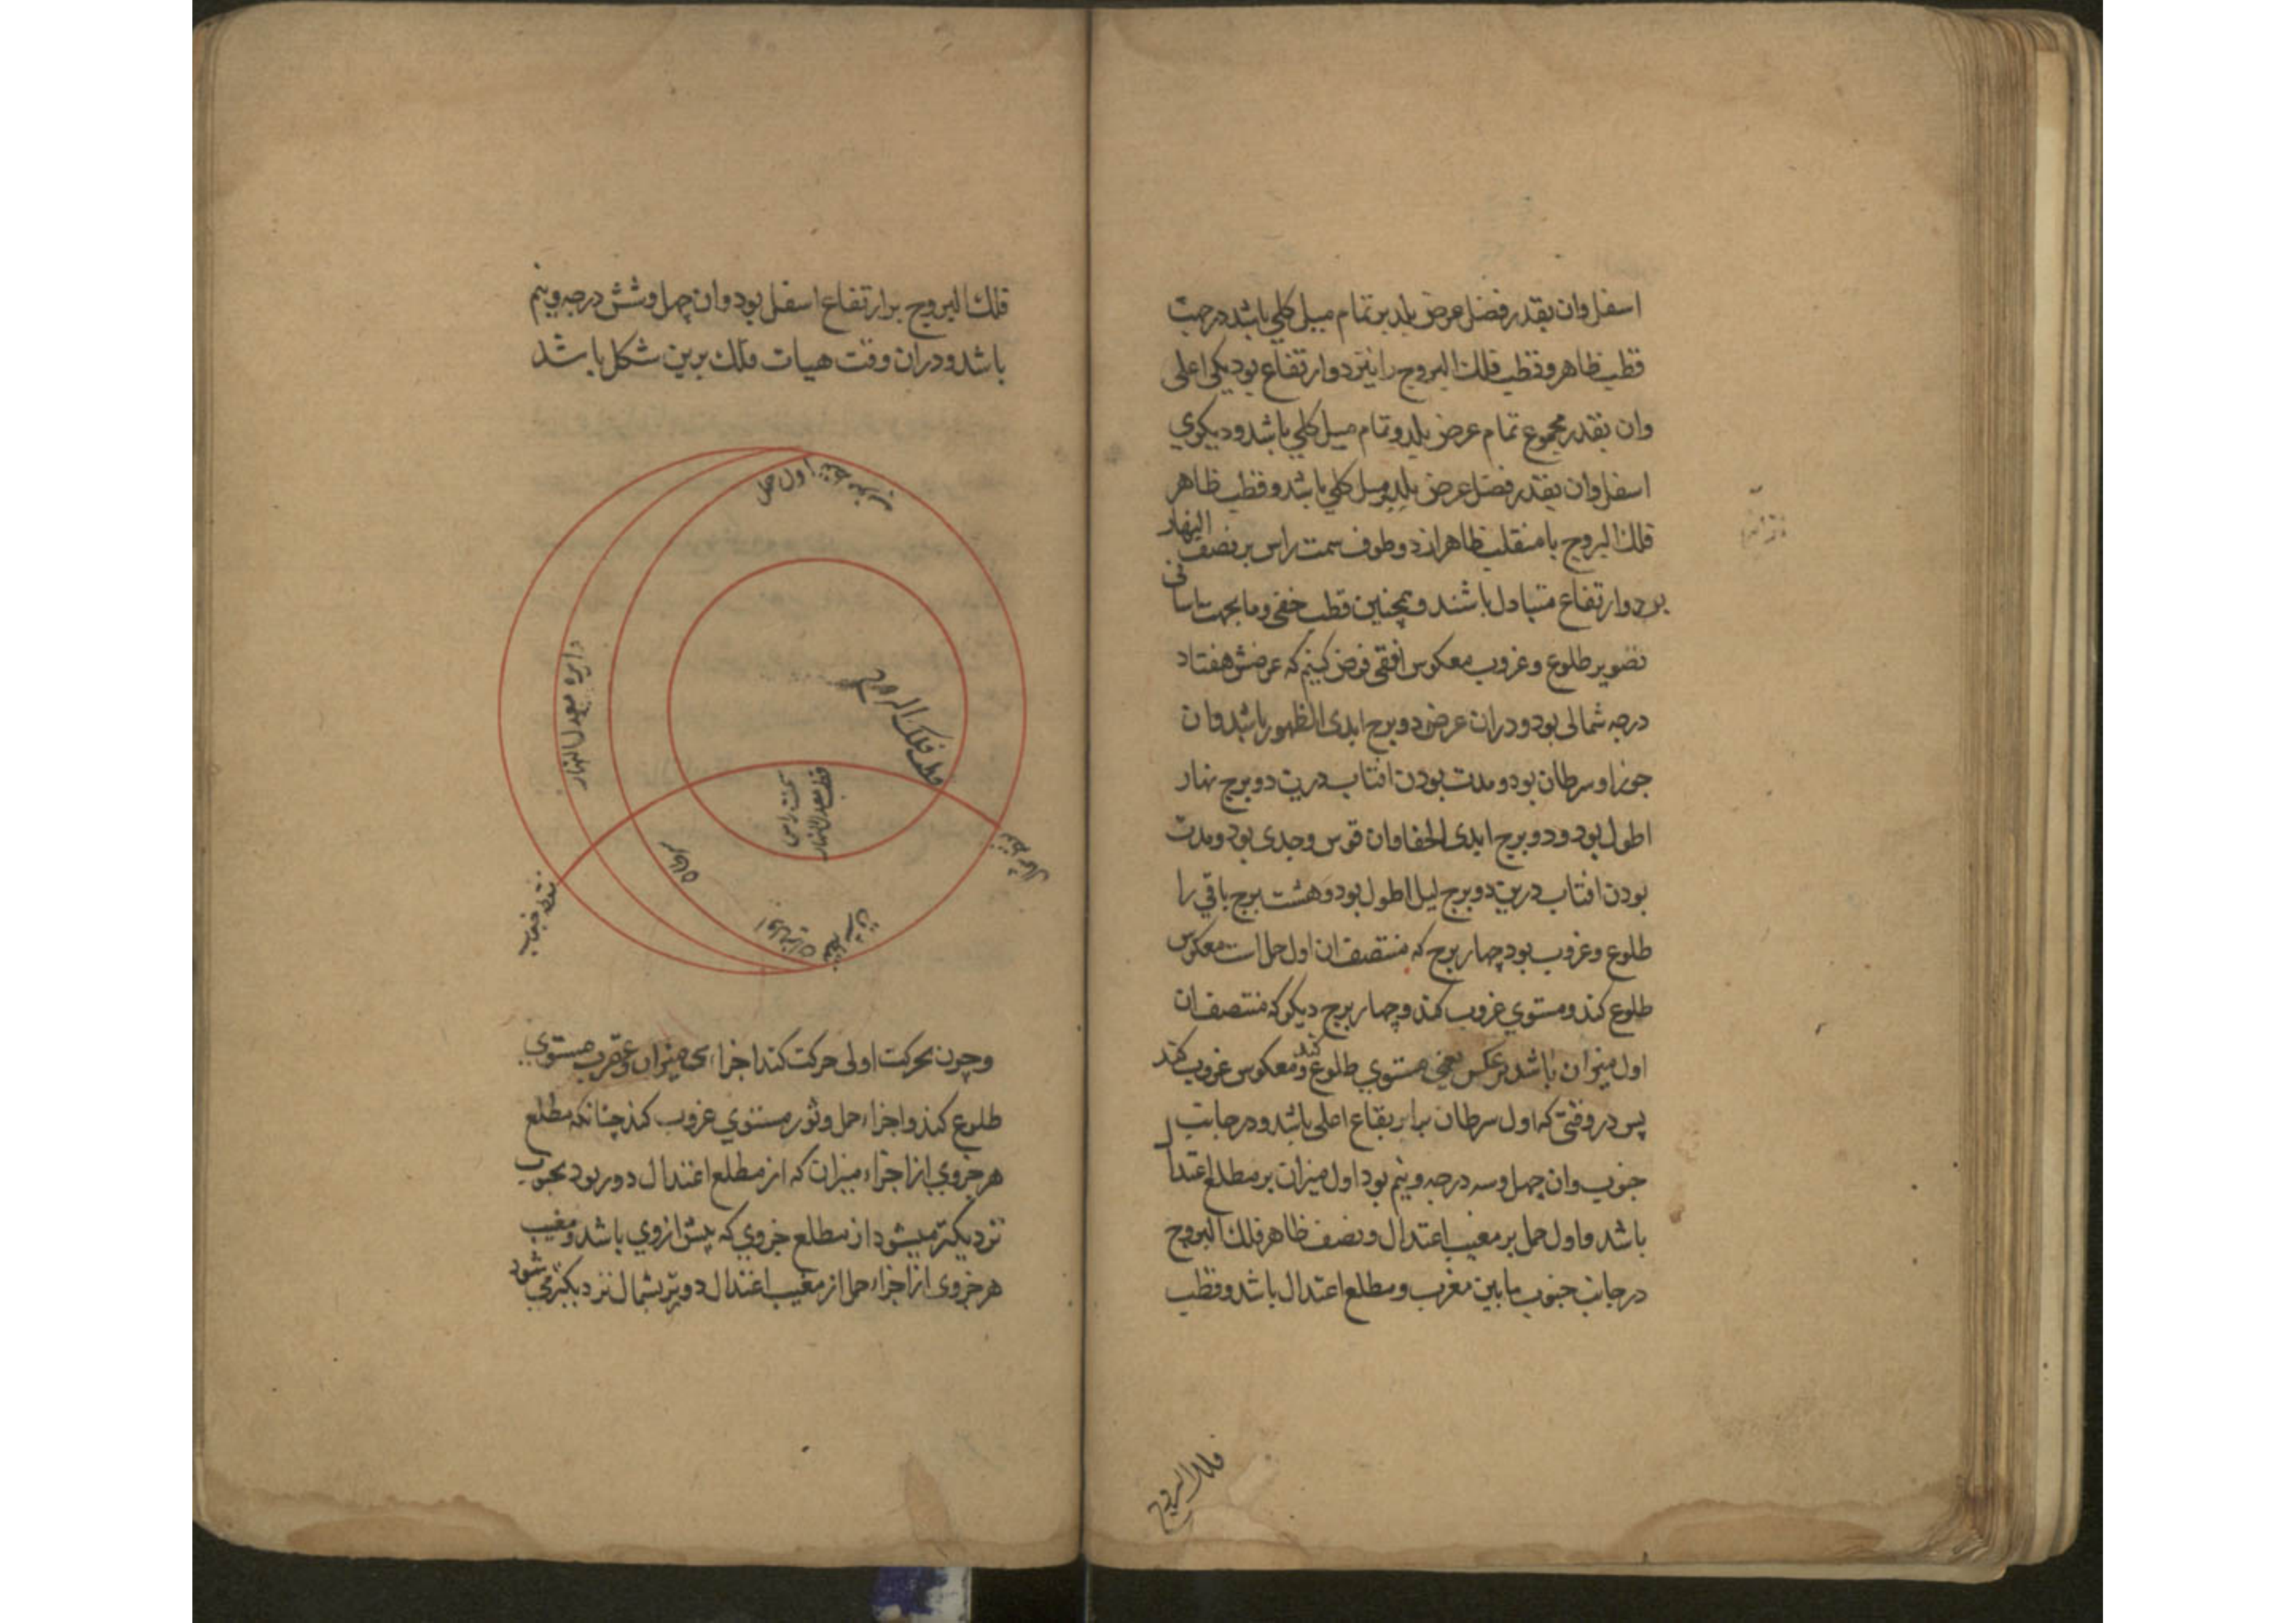 اسفل وان بقدر فضل عرض بلد بر تمام میل کلی باشد در جهت
قطب ظاهر و قطب فلک البروج را نیز دو ارتفاع بود یکی اعلی
وان بقدر مجموع تمام عرض بلد و تمام میل کلی باشد و دیگری
اسفل وان بقدر فضل عرض بلد بر میل کلی باشد و قطب ظاهر
فلک البروج با منقلب ظاهر از دو طرف سمت راس بر نصف النهار
بر دو ارتفاع متبادل باشند و همچنین قطب خفی و ما
تصویر طلوع و غروب معکوس افقی فرض کنیم که عرضش هفتاد
درجه شمالی بود و دران عرض دو برج ابدی الظهور باشد وان
جوزا و سرطان بود و مدت بودن افتاب درین دو برج نهار
اطول بود و دو برج ابدی الخفا وان قوس و جدی بود و مدت
بودن افتاب درین دو برج لیل اطول بود و هشت برج باقی را
طلوع و غروب بود چهار برج که منتصف ان اول حمل است معکوس
طلوع کند و مستوی غروب کند و چهار برج دیگر که منتصف ان
اول میزان باشد بر عکس یعنی مستوی طلوع کند و معکوس غروب کند
پس در وقتی که اول سرطان بر ارتفاع اعلی باشد و در جانب
جنوب وان چهل و سه درجه و نیم بود اول میزان بر مطلع اعتدال
باشد و اول حمل بر مغیب اعتدال و نصف ظاهر فلک البروج
در جانب جنوب ما بین مغرب و مطلع اعتدال باشد و قطب
فلک البروج
فلک البروج بر ارتفاع اسفل بود وان چهل و شش درجه و نیم
باشد و دران وقت هیات فلک برین شکل باشد
اول حمل
دایره معدل النهار
قطب فلک البروج
سمت راس
قطب معدل النهار
سرطان
نقطه جنوب
نقطه شمال
اول میزان
نقطه مشرق
و چون بحرکت اولی حرکت کند اجزاء میزان و عقرب مستوی
طلوع کند و اجزاء حمل و ثور مستوی غروب کند چنانکه مطلع
هر جزوی از اجزاء میزان که از مطلع اعتدال دور بود بجنوب
نزدیکتر میشود از مطلع جزوی که پیش از وی باشد و مغیب
هر جزوی از اجزاء حمل از مغیب اعتدال دورتر بشمال نزدیکتر می شود